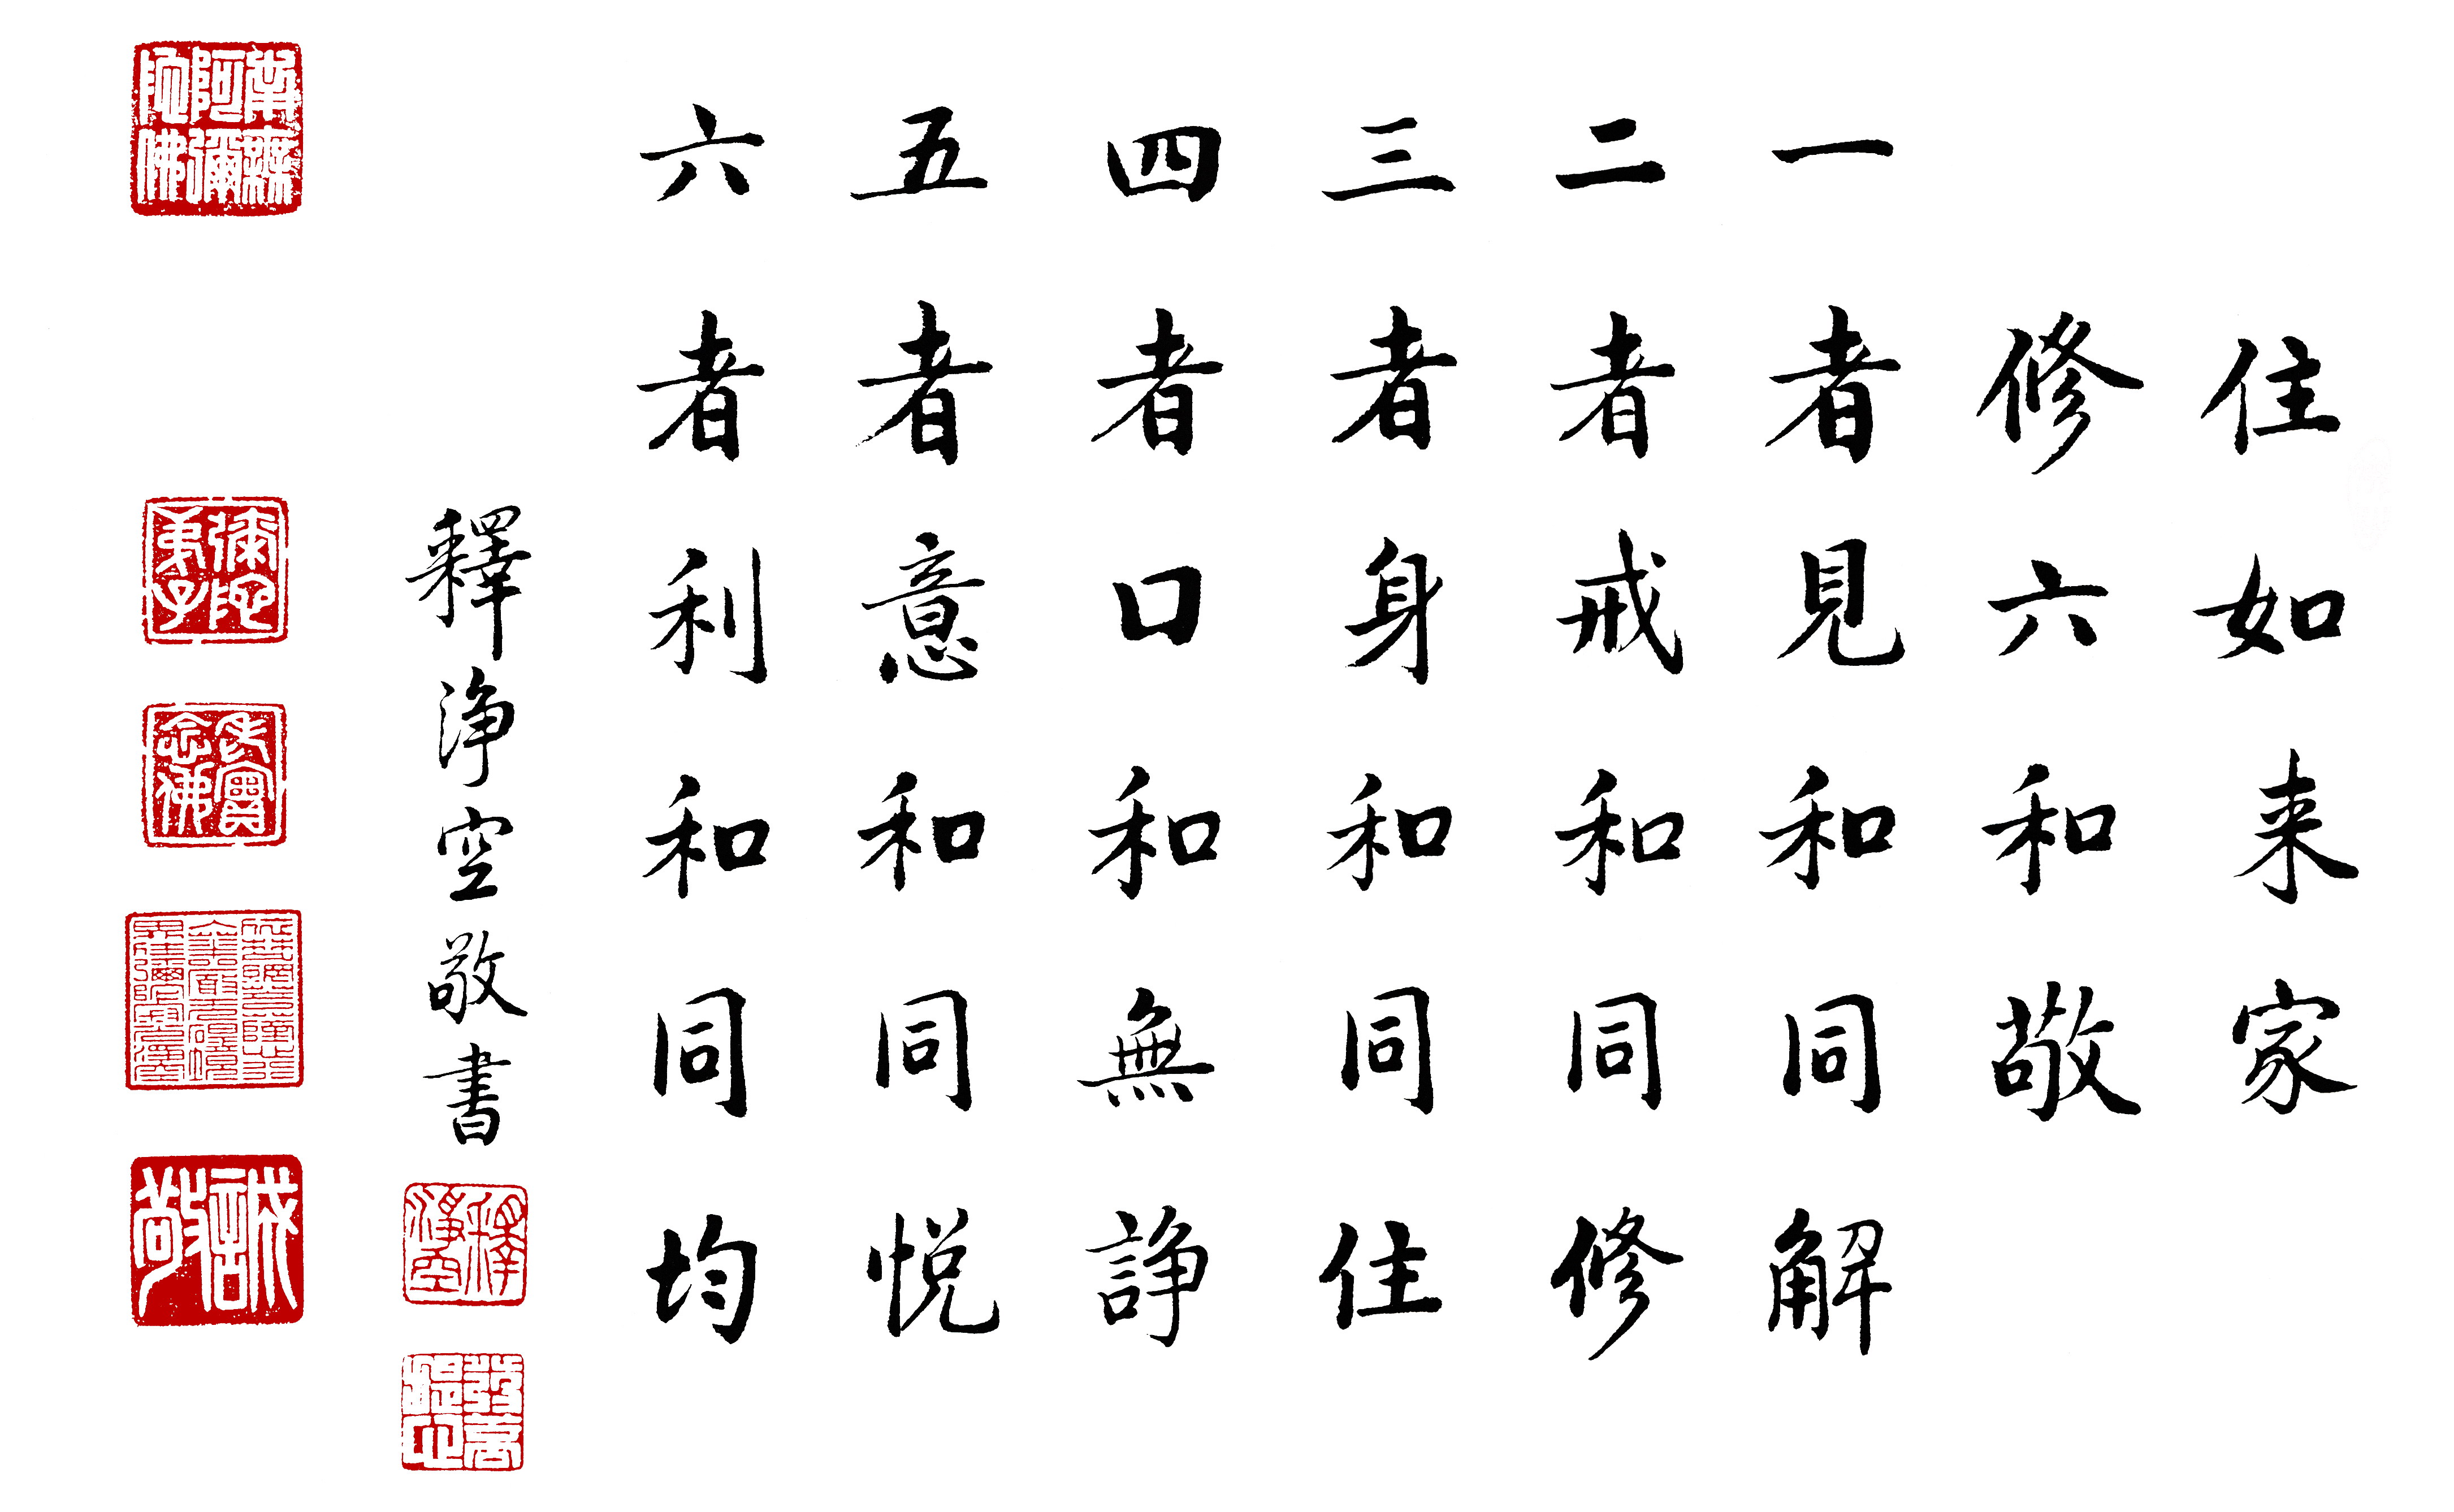 住如来家
修六和敬
一者見和同解
二者戒和同修
三者身和同住
四者口和無諍
五者意和同悅
六者利和同均
釋淨空敬書
釋淨空
南無阿彌陀佛
彌陀弟子
老實念佛
誠敬